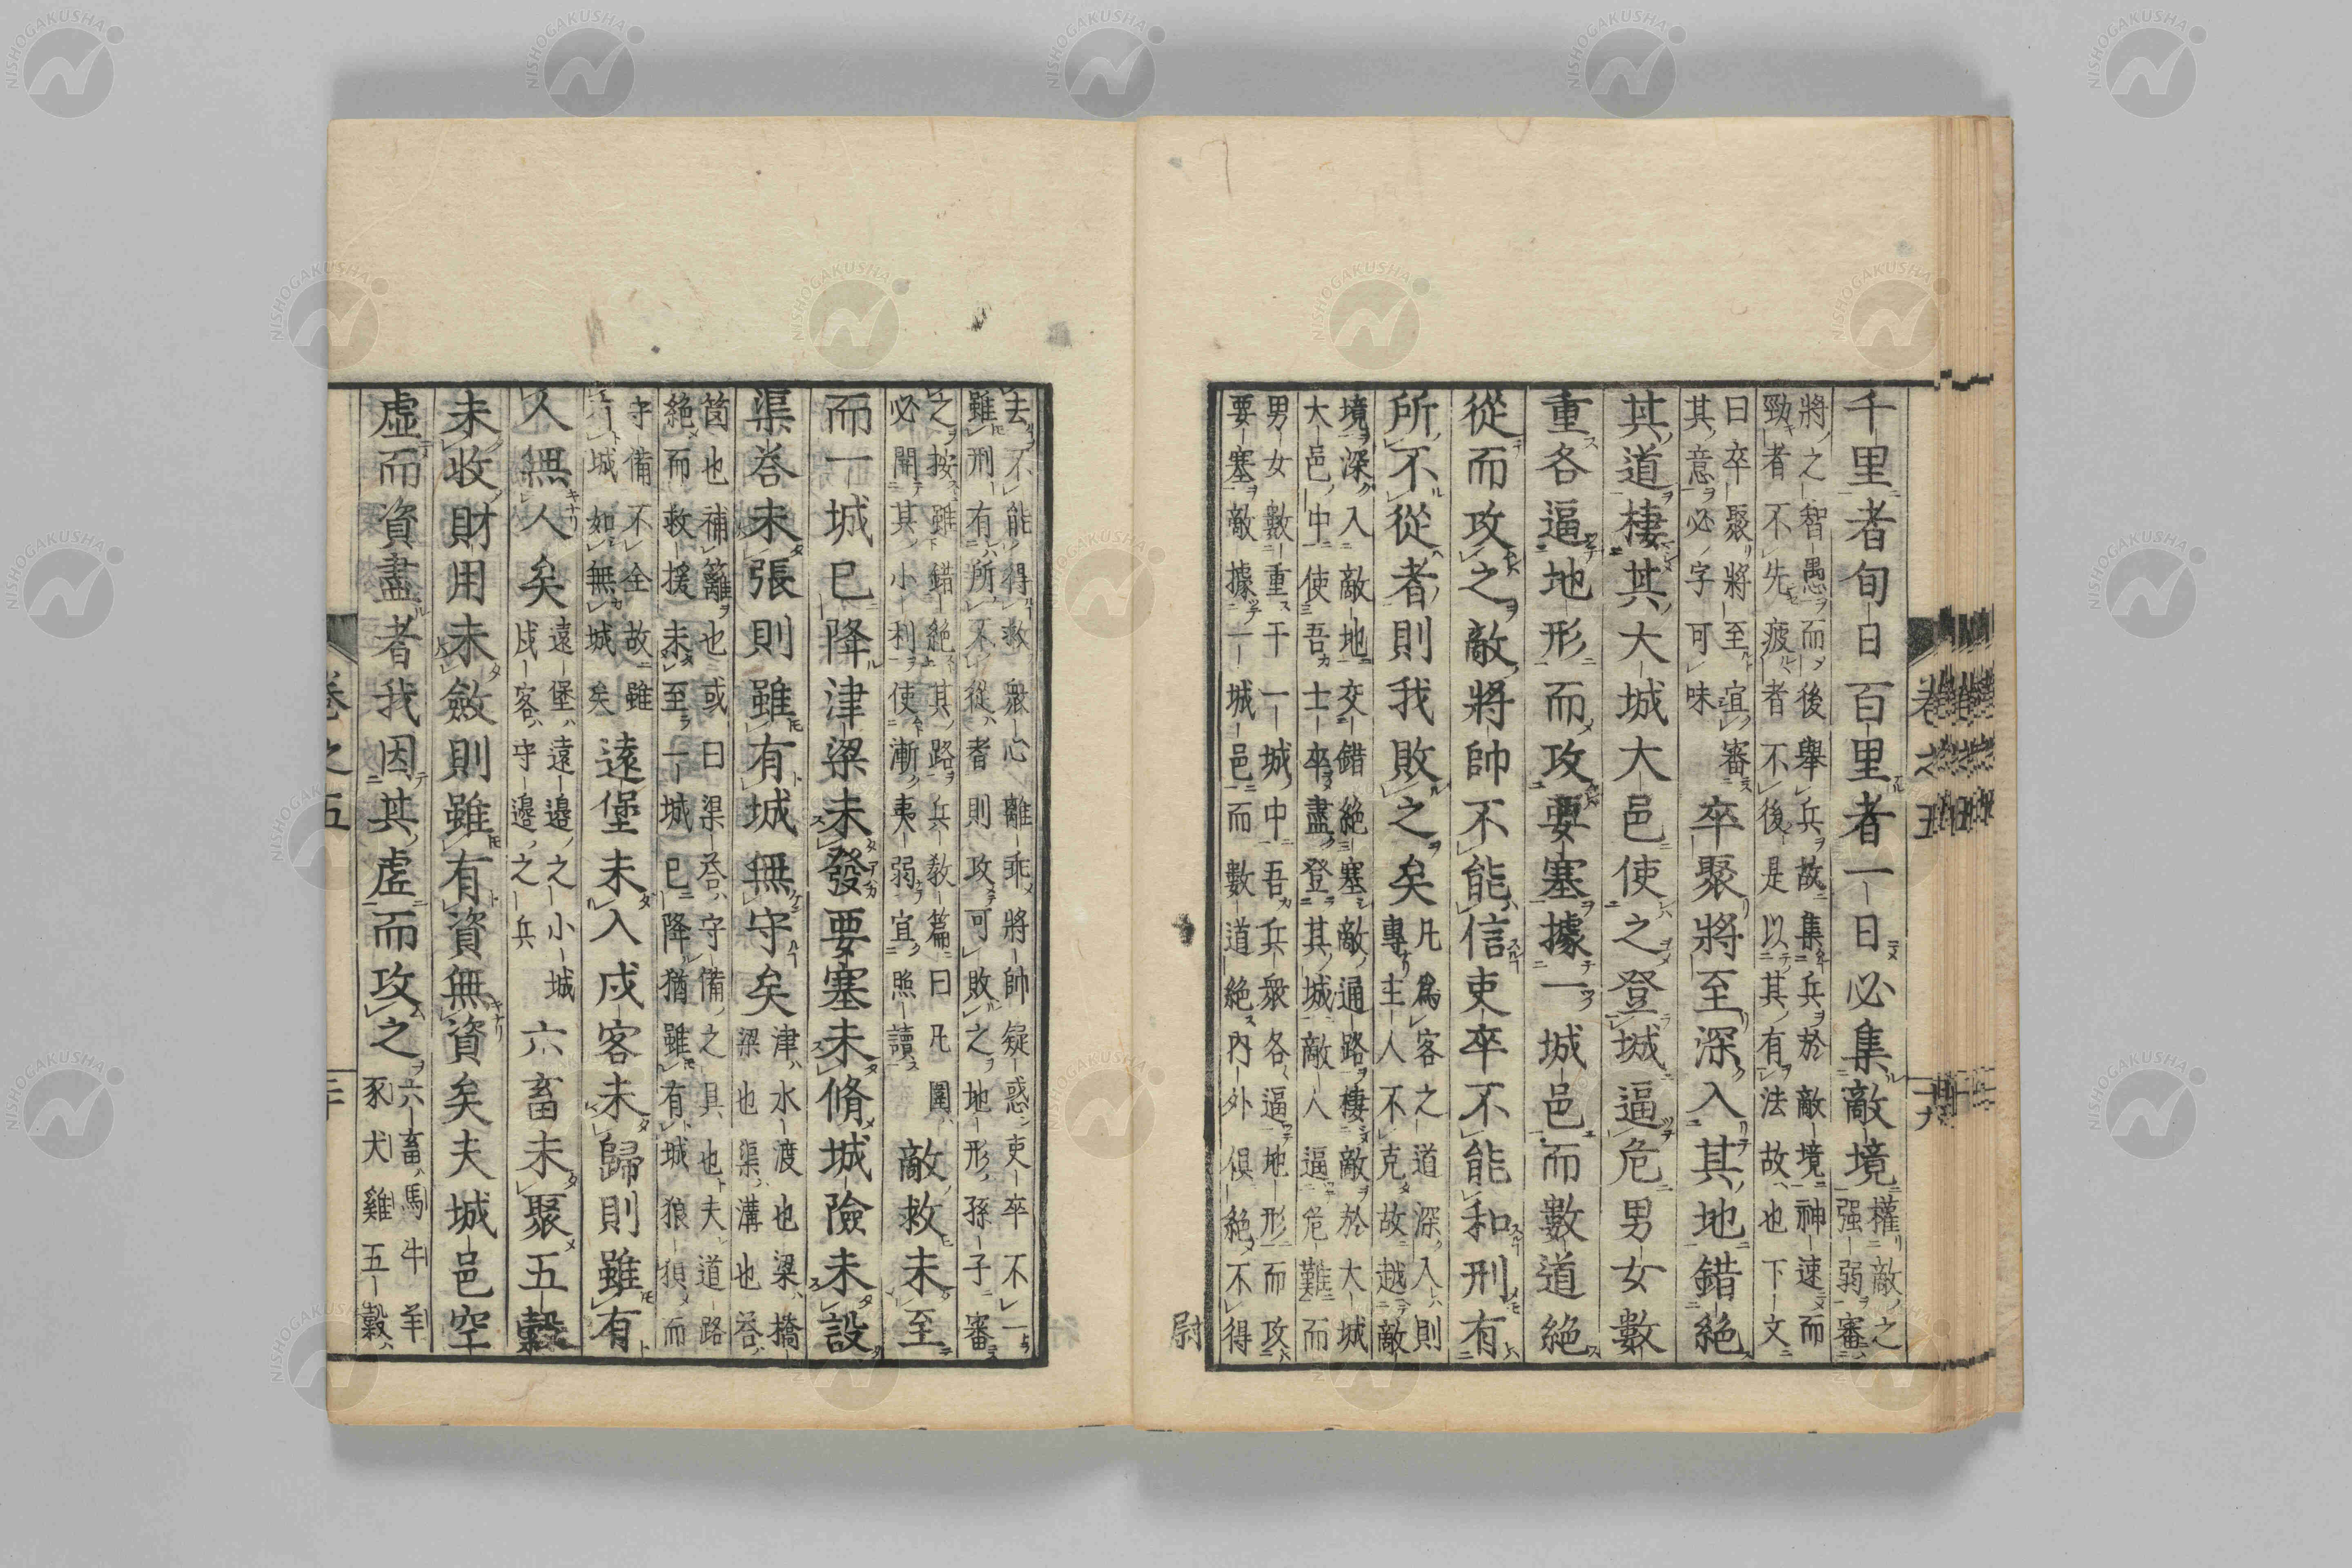 千里者旬日百里者一日必集敵境權敵之
强弱審
將之智愚而後舉兵故集兵於敵境神速而
勁者不先疲者不後是以其有法故也下文
曰卒聚將至宜審
其意必字可味
卒聚將至深入其地錯絕
其道棲其大城大邑使之登城逼危男女數
重各逼地形而攻要塞據一城邑而數道絕
從而攻之敵將帥不能信吏卒不能和刑有
所不從者則我敗之矣
凡爲客之道深入則
專主人不克故越敵
境深入敵地交錯絕塞敵通路棲敵於大城
大邑中使吾士卒盡登其城敵人逼危難而
男女數重于一城中吾兵衆各逼地形而攻
要塞敵據一城邑而數道絕内外俱絕不得
尉
去不能得救衆心離乖將帥疑惑吏卒不一
雖刑有所不從者則攻可敗之地形孫子審
之按雖錯絕其路兵教篇曰凡圍
必開其小利使漸夷弱宜照讀
敵救未至
而一城已降津梁未發要塞未脩城險未設
渠荅未張則雖有城無守矣
津水渡也梁橋
梁也渠溝也荅
茵也補籬也或曰渠荅守備之具也夫道路
絕而救援未至一城已降猶雖有城狼狽而
守備不全故雖
有城如無城矣
遠堡未入戍客未歸則雖有
人無人矣
遠堡遠邊之小城
戍客守邊之兵
六畜未聚五穀
未收財用未斂則雖有資無資矣夫城邑空
虛而資盡者我因其虛而攻之
六畜馬牛羊
豕犬雞五穀
卷之五